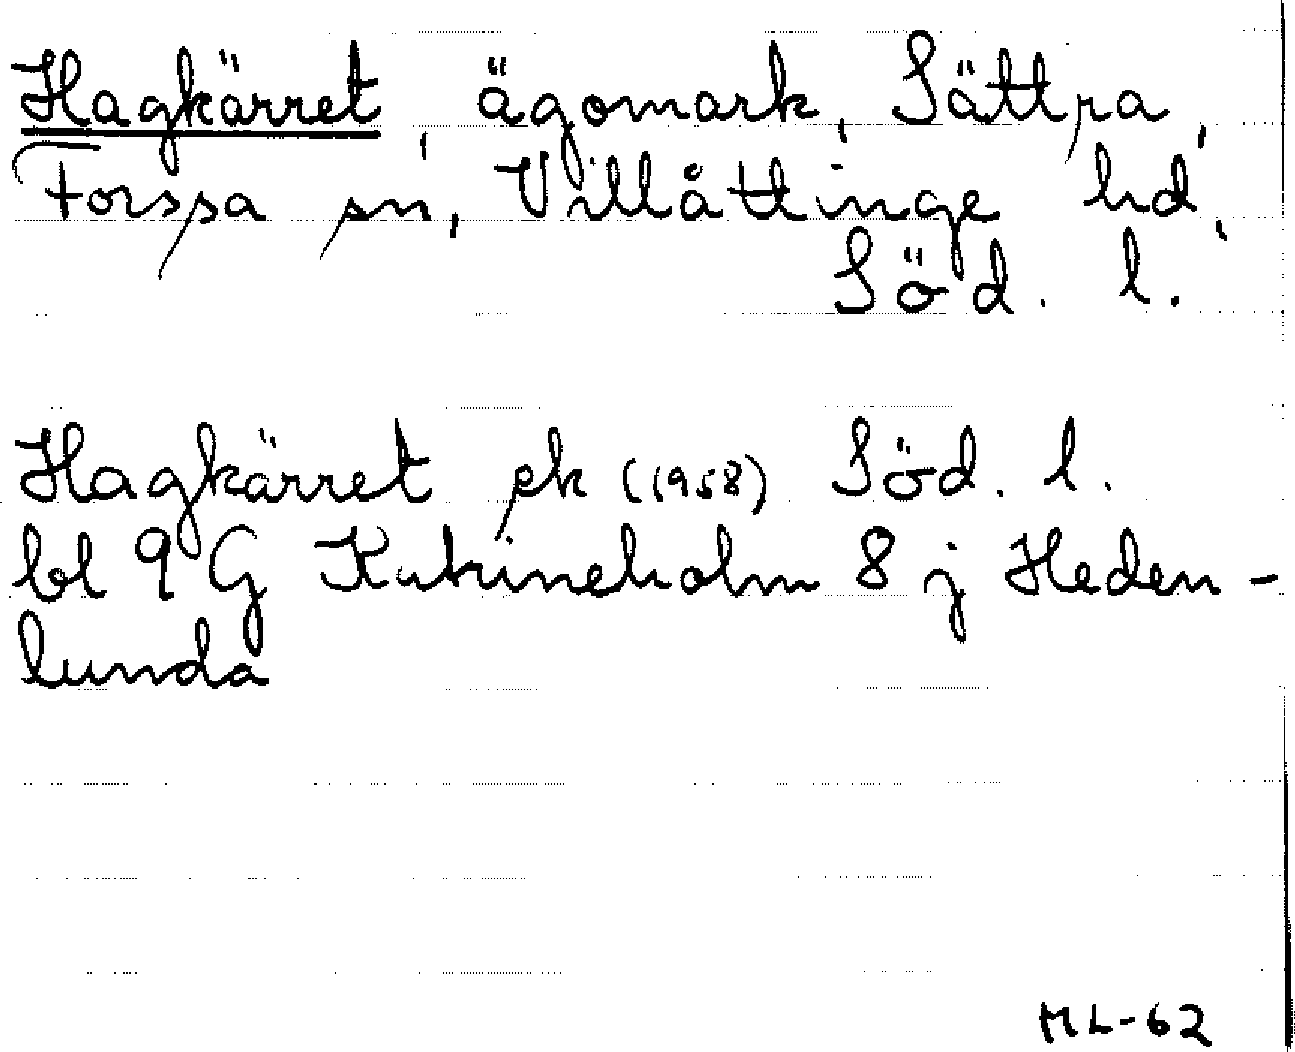 Hagkärret, ägomark, Sättra,
Forssa sn, Villåttinge hd,
Söd. l.
Hagkärret ek (1958) Söd. l.
bl 9 G Katrineholm 8 j Heden-
lunda
ML-62